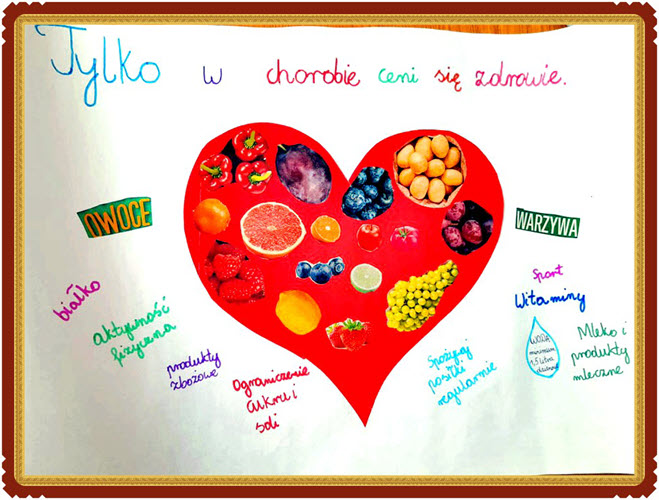 Tylko w chorobie ceni się zdrowie.
OWOCE
WARZYWA
białko
aktywność
fizyczna
produkty
zbożowe
Ograniczenie
cukru i
soli
Spożywaj
posiłki
regularnie
Sport
Witaminy
WODA
minimum
1,5 litra
dziennie
Mleko i
produkty
mleczne